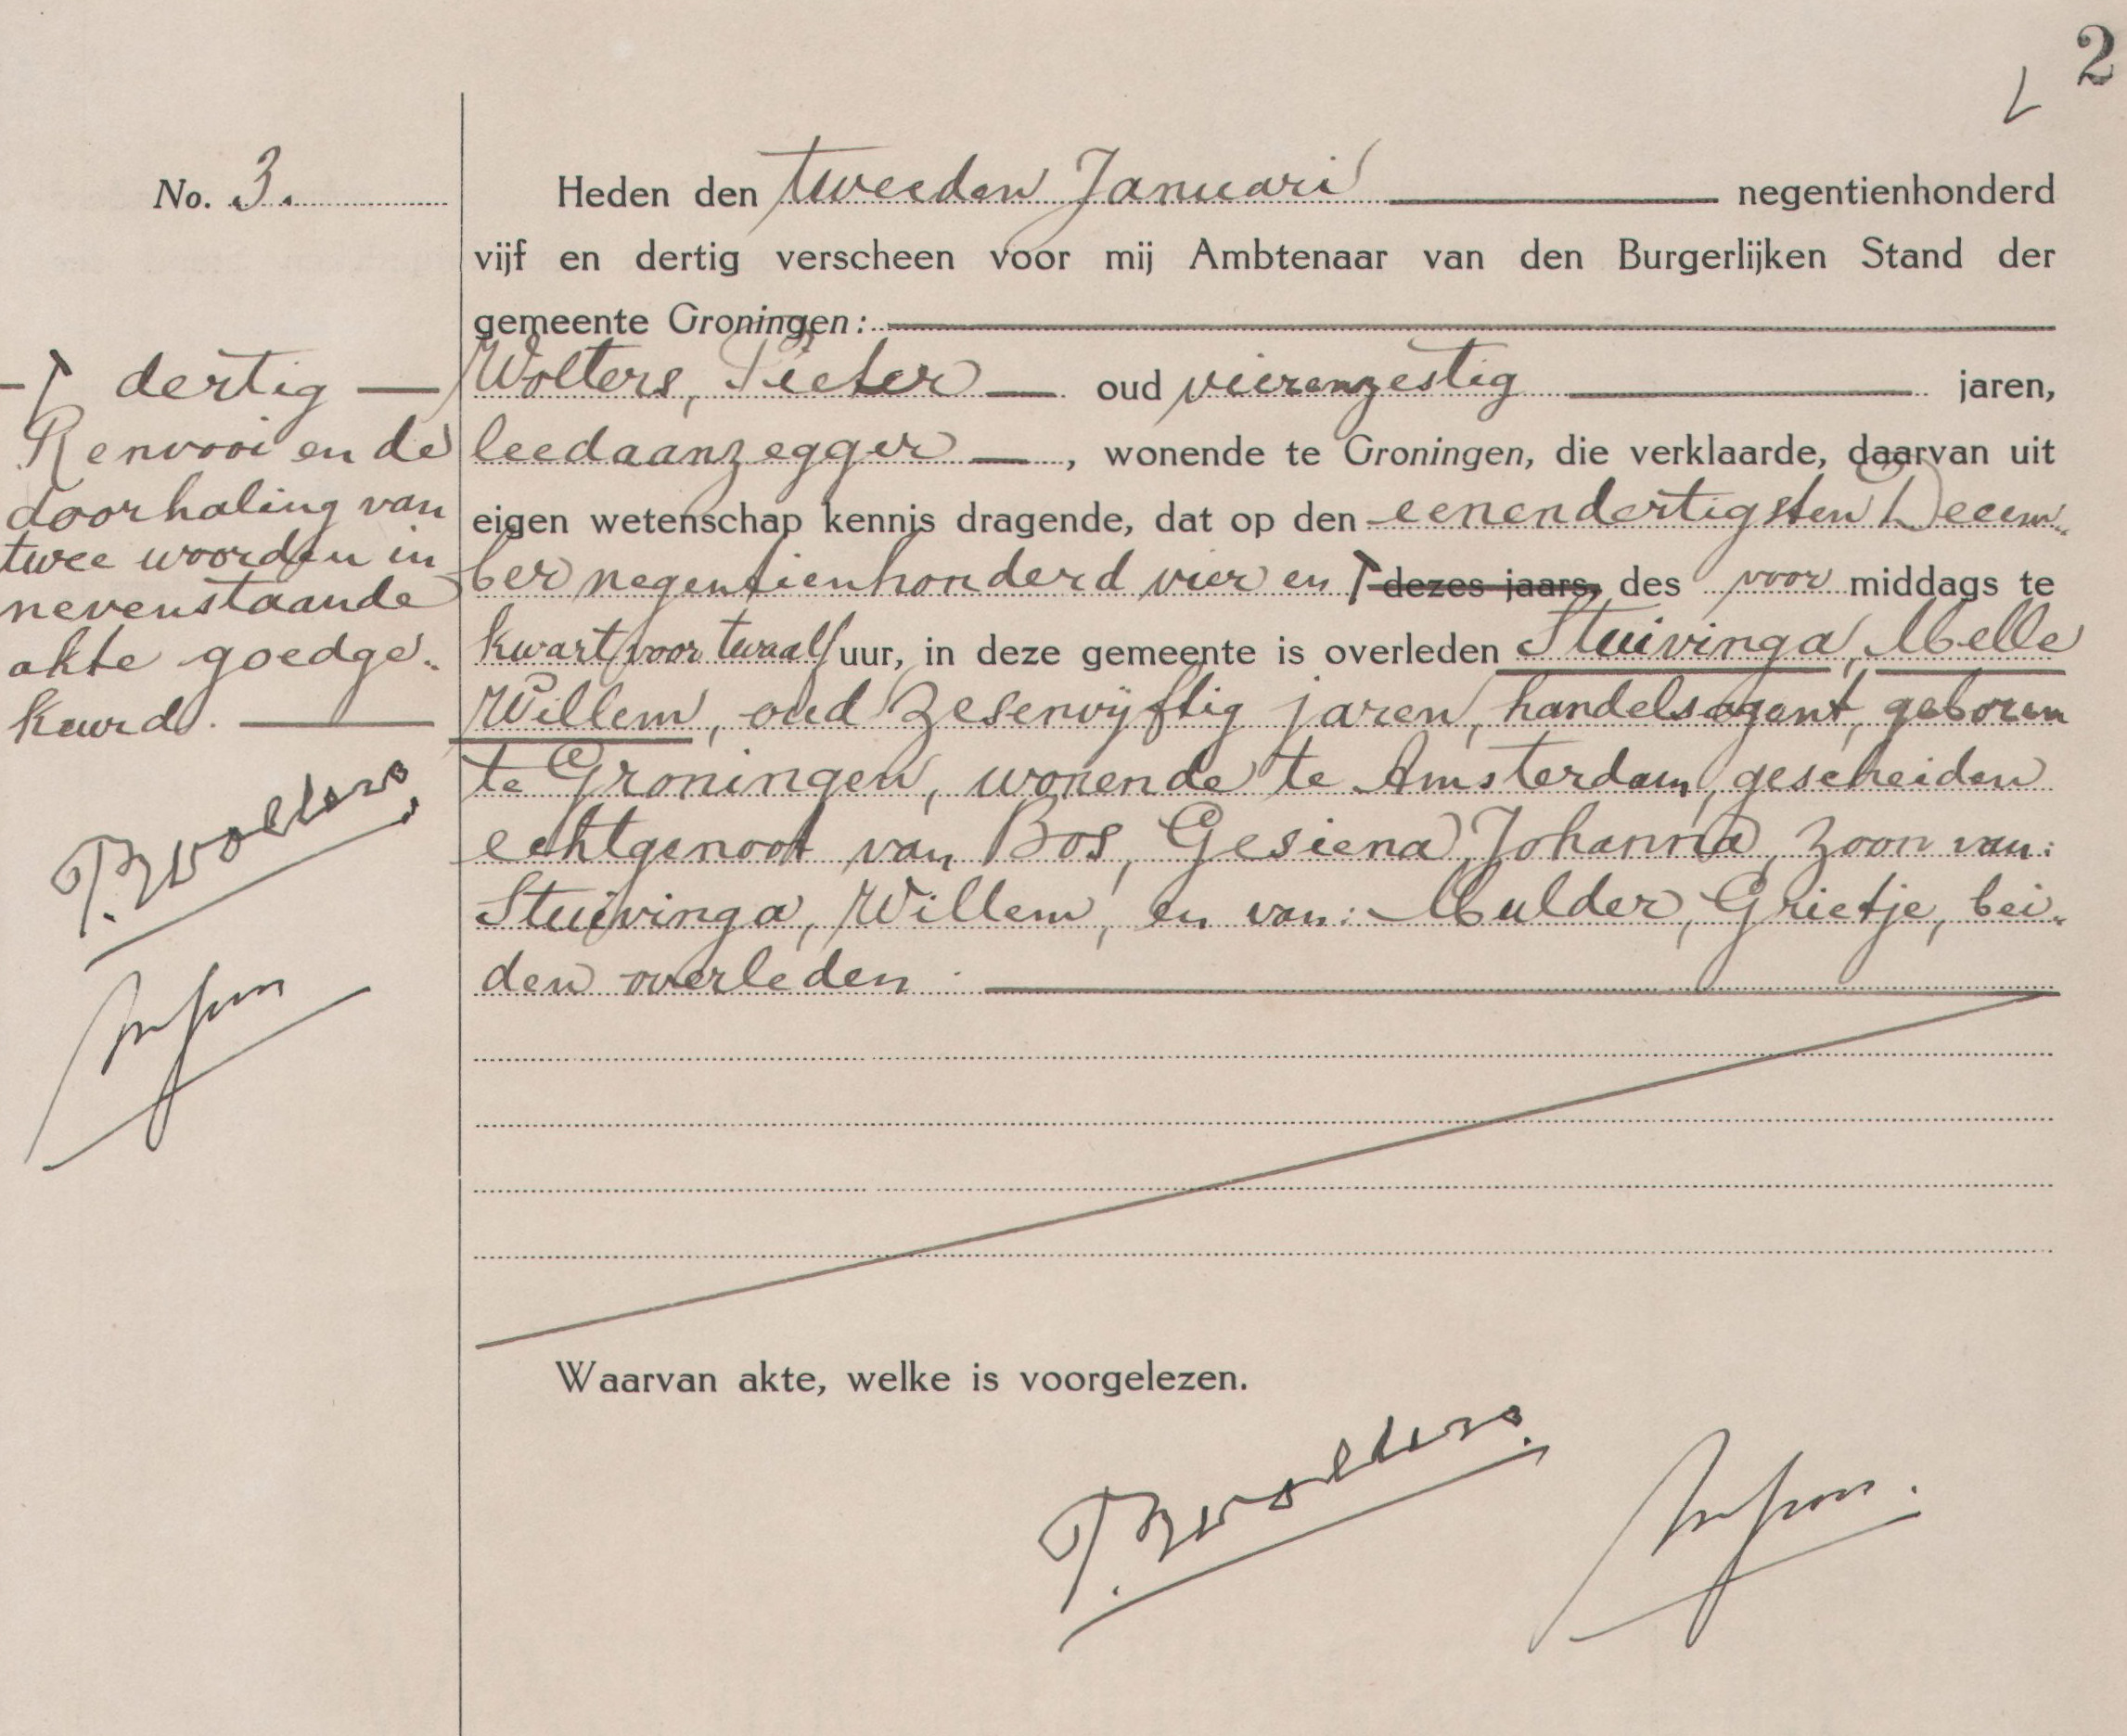 2
No. 3.
Heden den tweeden Januari negentienhonderd
vijf en dertig verscheen voor mij Ambtenaar van den Burgerlijken Stand der
gemeente Groningen:
Wolters, Pieter oud vierenzestig jaren,
leedaanzegger, wonende te Groningen, die verklaarde, daarvan uit
eigen wetenschap kennis dragende, dat op den eenendertigsten Decem-
ber negentienhonderd vier en ⌈ dezes jaars, des voor middags te
kwart voor twaalf uur, in deze gemeente is overleden Stuivinga, Melle
Willem, oud zesenvijftig jaren, handelsagent, geboren
te Groningen, wonende te Amsterdam, gescheiden
echtgenoot van Bos, Gesiena Johanna, zoon van:
Stuivinga, Willem, en van: Mulder, Grietje, bei-
den overleden.
⌈ dertig
Renvooi en de
doorhaling van
twee woorden in
nevenstaande
akte goedge-
keurd.
P. Wolters
Waarvan akte, welke is voorgelezen.
P. Wolters